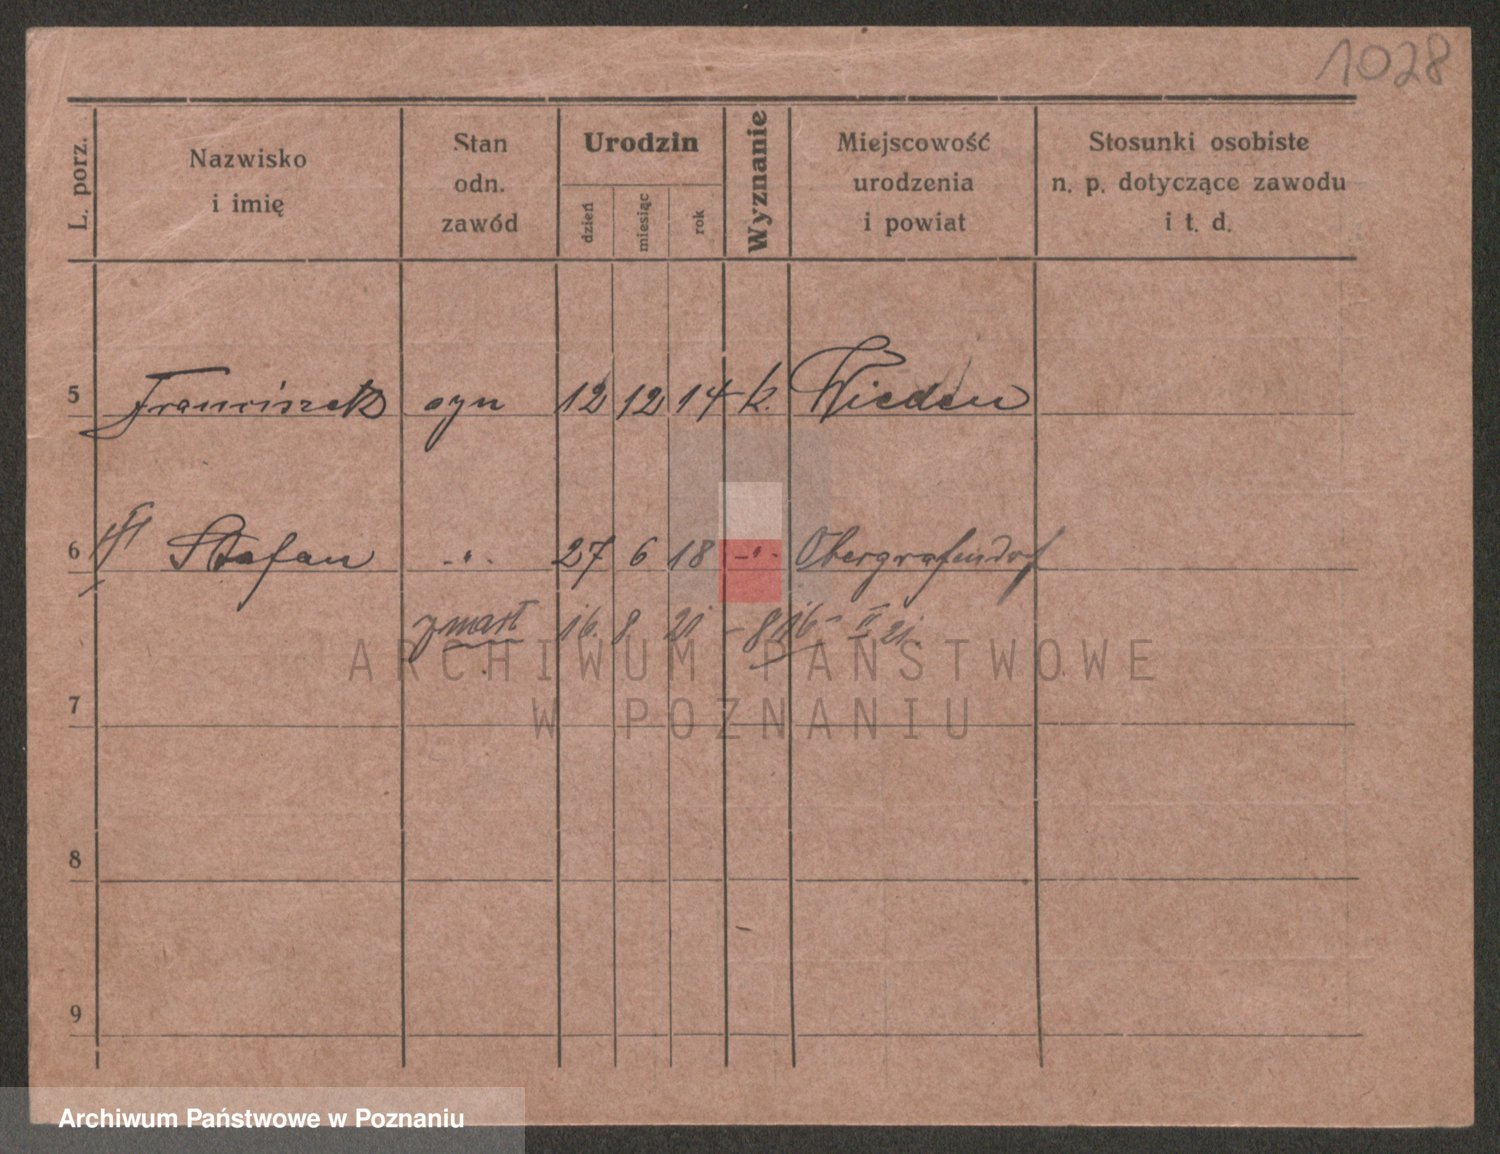 1028
L. porz.
Nazwisko
i imię
Stan
odn.
zawód
Urodzin
dzień
miesiąc
rok
Wyznanie
Miejscowość
urodzenia
i powiat
Stosunki osobiste
n. p. dotyczące zawodu
i t. d.
5 Franciszek syn 12 12 14 k. Wieden
6 Stefan -"- 27 6 18 -"- Obergrafendorf
zmarł 16. 8 21 -
ARCHIWUM PAŃSTWOWE
W POZNANIU
7
8
9
Archiwum Państwowe w Poznaniu